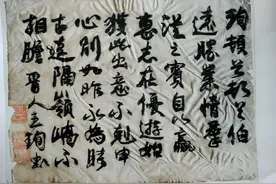 珣頓首頓首伯
遠勝業情期羣
從之寶自以羸
患志在優遊始
獲此出意不剋申
分別如昨永為疇
古遠隔嶺嶠不
相瞻晉人王珣書